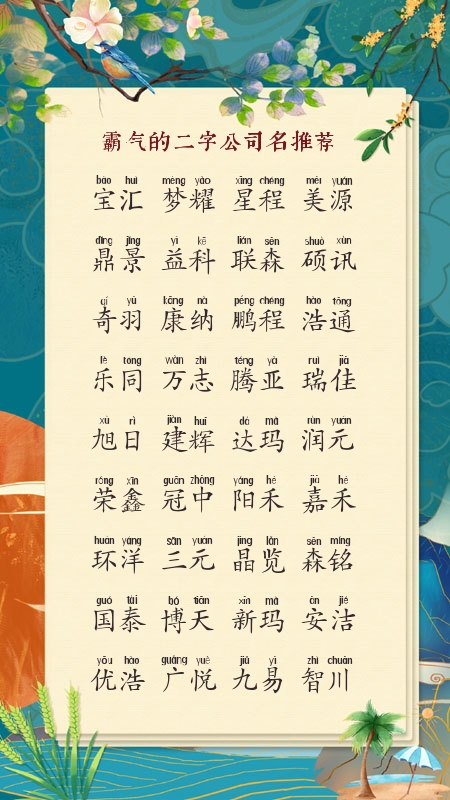 霸气的二字公司名推荐
bǎo huì mèng yào xīng chéng měi yuán
宝汇 梦耀 星程 美源
dǐng jǐng yì kē lián sēn shuò xùn
鼎景 益科 联森 硕讯
qí yǔ kāng nà péng chéng hào tōng
奇羽 康纳 鹏程 浩通
lè tóng wàn zhì téng yà ruì jiā
乐同 万志 腾亚 瑞佳
xù rì jiàn huī dá mǎ rùn yuán
旭日 建辉 达玛 润元
róng xīn guān zhōng yáng hé jiā hé
荣鑫 冠中 阳禾 嘉禾
huán yáng sān yuán jīng lǎn sēn míng
环洋 三元 晶览 森铭
guó tài bó tiān xīn mǎ ān jié
国泰 博天 新玛 安洁
yōu hào guǎng yuè jiǔ yì zhì chuān
优浩 广悦 九易 智川